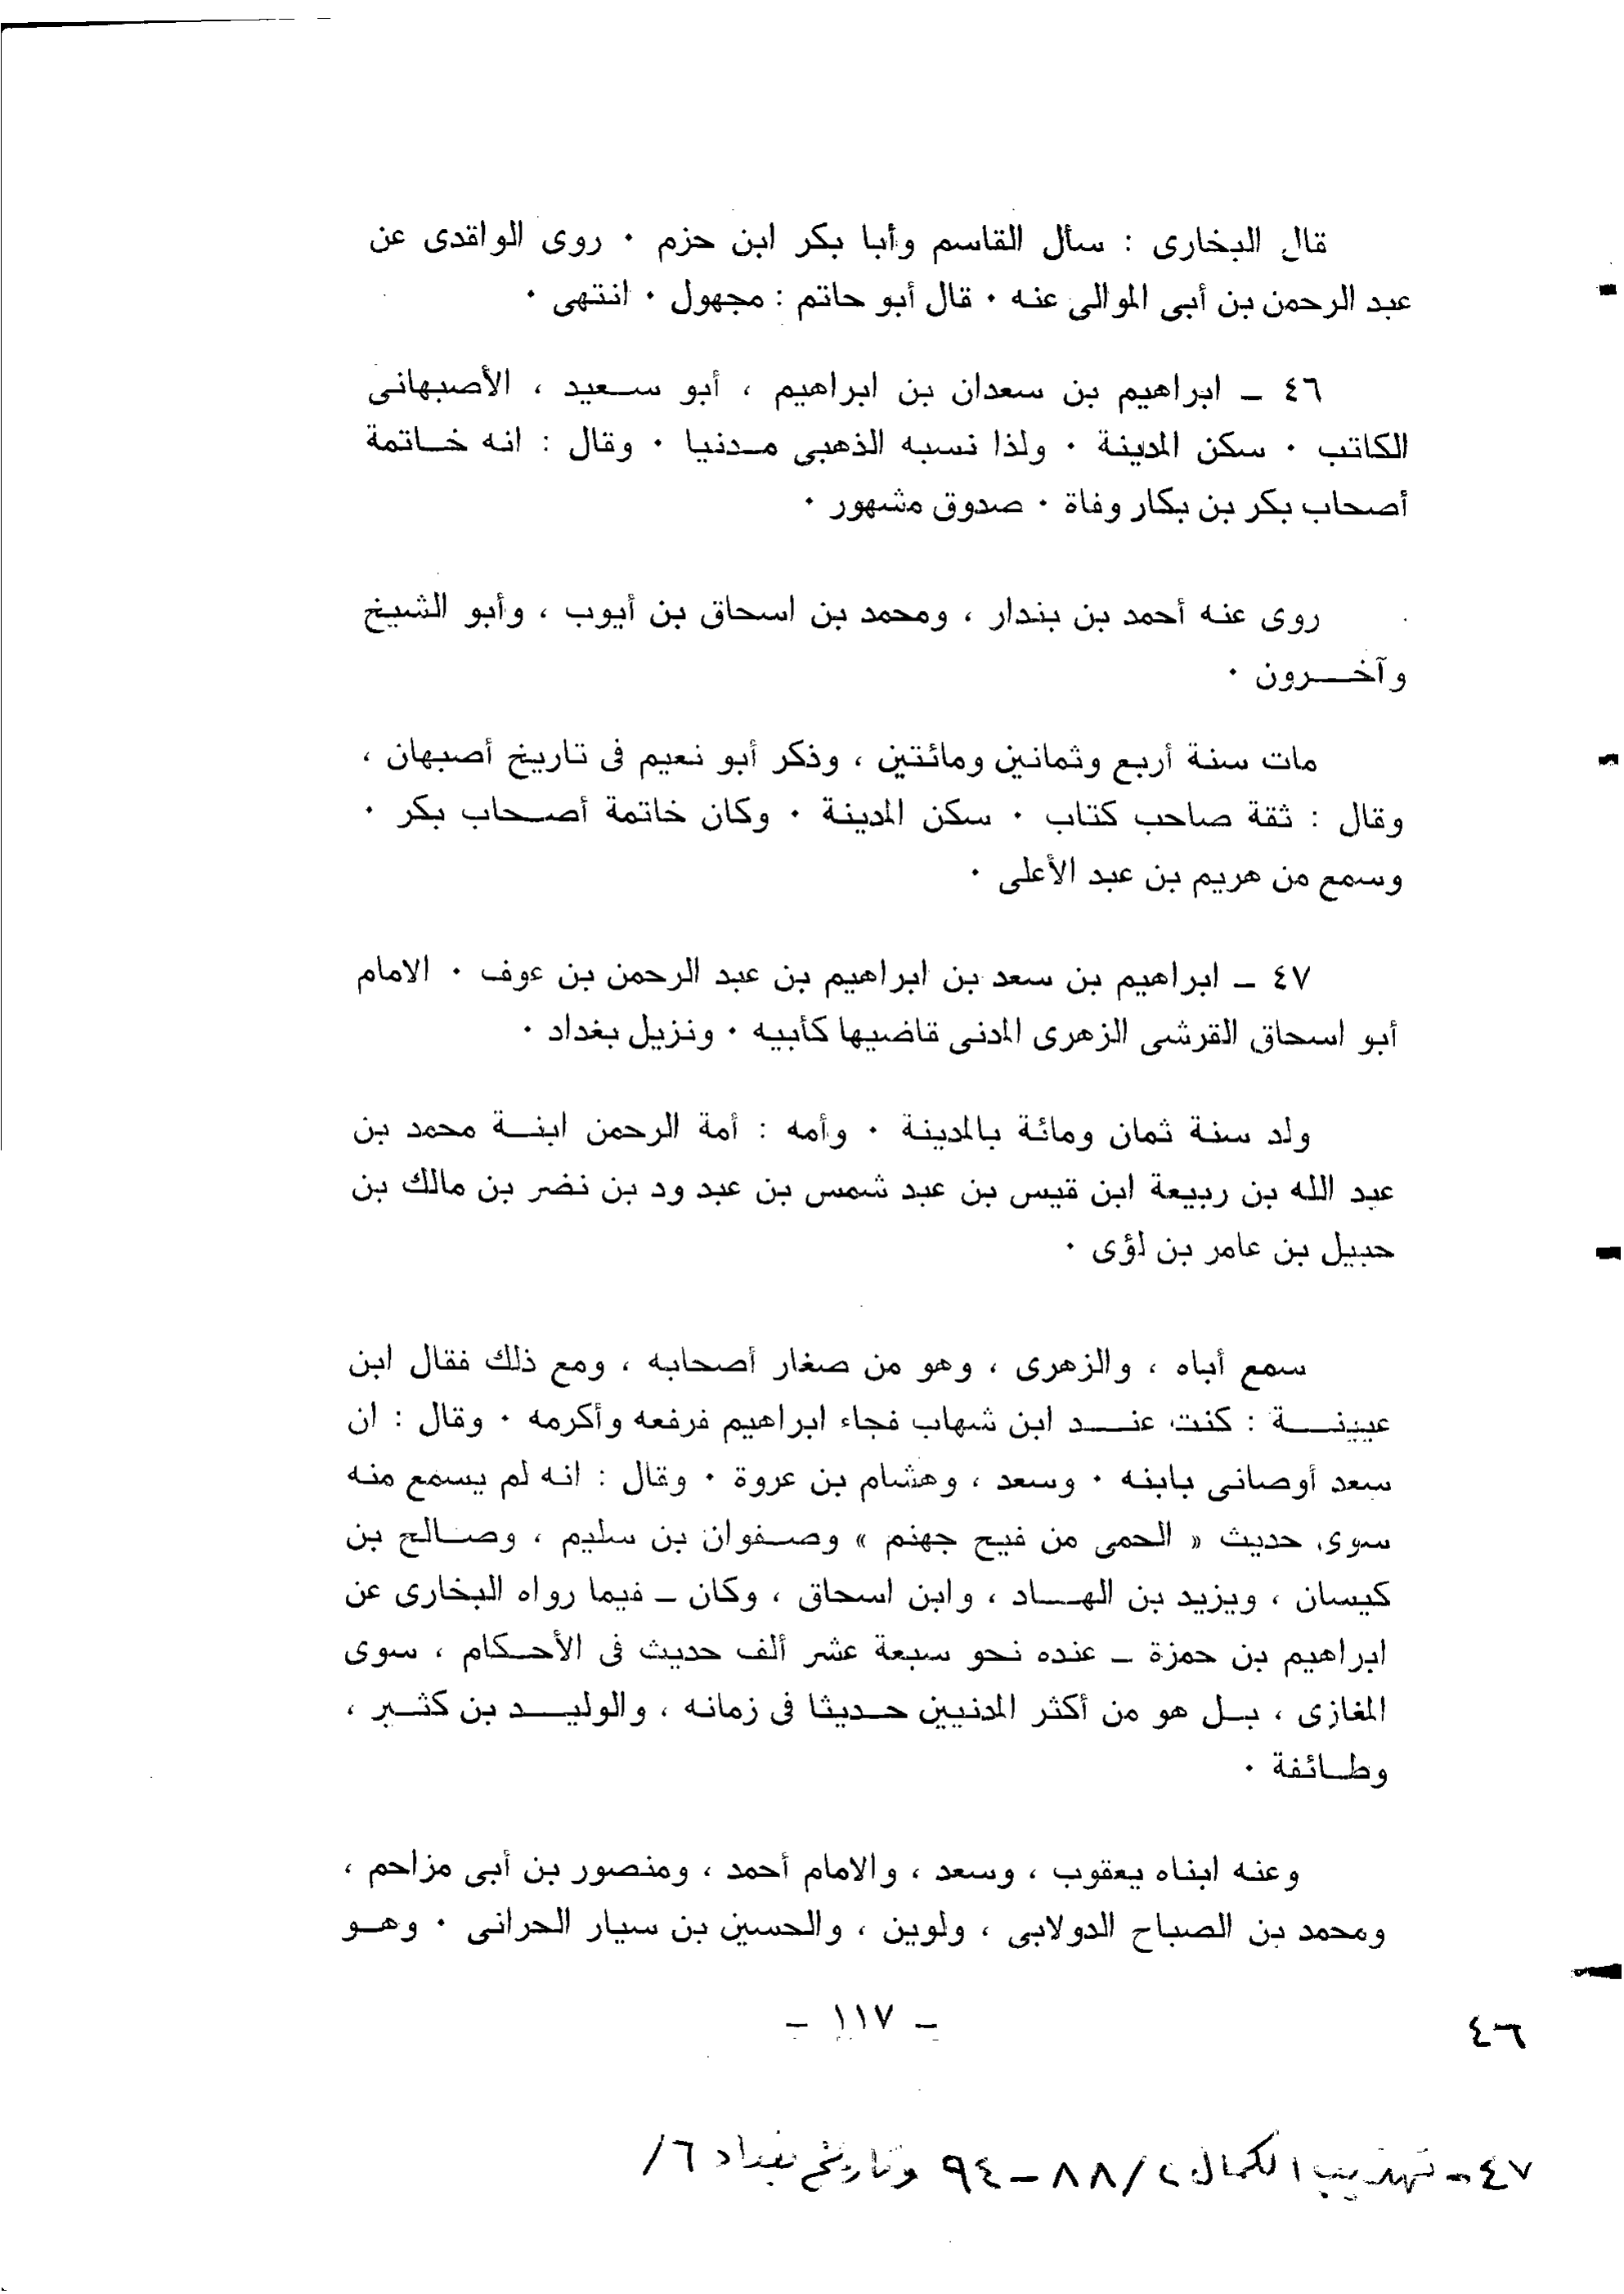 قال البخارى : سأل القاسم وأبا بكر ابن حزم ٠ روى الواقدى عن
عبد الرحمن بن أبى الموالى عنه ٠ قال أبو حاتم : مجهول ٠ انتهى ٠
٤٦ ـ ابراهيم بن سعدان بن ابراهيم ، أبو سـعيد ، الأصبهانى
الكاتب ٠ سكن المدينة ٠ ولذا نسبه الذهبى مـدنيا ٠ وقال : انه خـاتمة
أصحاب بكر بن بكار وفاة ٠ صدوق مشهور ٠
روى عنه أحمد بن بندار ، ومحمد بن اسحاق بن أيوب ، وأبو الشيخ
وآخـــرون ٠
مات سنة أربع وثمانين ومائتين ، وذكر أبو نعيم فى تاريخ أصبهان ،
وقال : ثقة صاحب كتاب ٠ سكن المدينة ٠ وكان خاتمة أصـحاب بكر ٠
وسمع من هريم بن عبد الأعلى ٠
٤٧ ـ ابراهيم بن سعد بن ابراهيم بن عبد الرحمن بن عوف ٠ الامام
أبو اسحاق القرشى الزهرى المدنى قاضيها كأبيه ٠ ونزيل بغداد ٠
ولد سنة ثمان ومائة بالمدينة ٠ وأمه : أمة الرحمن ابنـة محمد بن
عبد الله بن ربيعة ابن قيس بن عبد شمس بن عبد ود بن نضر بن مالك بن
حبيل بن عامر بن لؤى ٠
سمع أباه ، والزهرى ، وهو من صغار أصحابه ، ومع ذلك فقال ابن
عيينـــة : كنت عنـــد ابن شهاب فجاء ابراهيم فرفعه وأكرمه ٠ وقال : ان
سعد أوصانى بابنه ٠ وسعد ، وهشام بن عروة ٠ وقال : انه لم يسمع منه
سوى حديث « الحمى من فيح جهنم » وصـفوان بن سليم ، وصـالح بن
كيسان ، ويزيد بن الهــاد ، وابن اسحاق ، وكان ـ فيما رواه البخارى عن
ابراهيم بن حمزة ـ عنده نحو سبعة عشر ألف حديث فى الأحـكام ، سوى
المغازى ، بـل هو من أكثر المدنيين حـديثا فى زمانه ، والوليــد بن كثـير ،
وطـائفة ٠
وعنه ابناه يعقوب ، وسعد ، والامام أحمد ، ومنصور بن أبى مزاحم ،
ومحمد بن الصباح الدولابى ، ولوين ، والحسين بن سيار الحرانى ٠ وهـو
ـ ١١٧ ـ
٤٦
٤٧ـ تهذيب الكمال ٢/ ٨٨ـ٩٤ وتاريخ بغداد ٦/